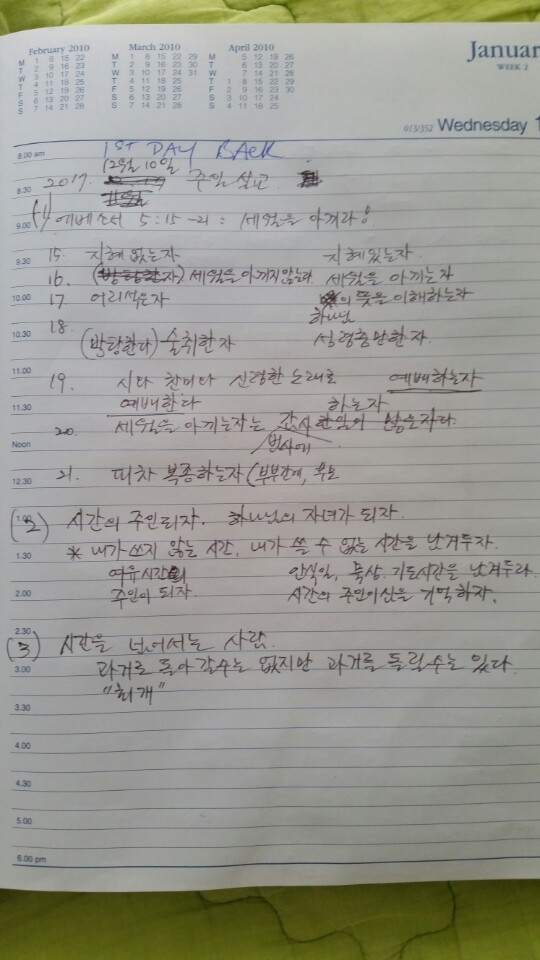 February 2010 March 2010 April 2010
M 1 8 15 22 M 1 8 15 22 29 M 5 12 19 26
T 2 9 16 23 T 2 9 16 23 30 T 6 13 20 27
W 3 10 17 24 W 3 10 17 24 31 W 7 14 21 28
T 4 11 18 25 T 4 11 18 25 T 1 8 15 22 29
F 5 12 19 26 F 5 12 19 26 F 2 9 16 23 30
S 6 13 20 27 S 6 13 20 27 S 3 10 17 24
S 7 14 21 28 S 7 14 21 28 S 4 11 18 25
Januar
WEEK 2
013/352 Wednesday 1
8.00 am 1ST DAY BACK
12월 10일
8.30 2017. 주일 설교
9.00 (1) 에베소서 5:15-21: 세월을 아껴라!
9.30 15. 지혜 없는자 지혜있는자
16. (방탕한자) 세월을 아끼지않는자 세월을 아끼는자
10.00 17 어리석은자 의 뜻을 이해하는자
하나님
10.30 18 (방탕한다) 술취한자 성령충만한자.
11.00 19. 시와 찬미와 신령한 노래로 예배하는자
11.30 예배한다 하는자
20. 세월을 아끼는자는 감사한일이 많은자다.
Noon 범사에
12.30 21. 피차 복종하는자 (부부간에, 부모
(2) 시간의 주인되자. 하나님의 자녀가 되자.
1.30 * 내가 쓰지 않는 시간, 내가 쓸 수 없는 시간을 남겨두자.
여유시간의 안식일, 묵상. 기도시간을 남겨두라
2.00 주인이 되자 시간의 주인이신을 기억하자.
2.30 (3) 시간을 넘어서는 사람.
3.00 과거로 돌아 갈수는 없지만 과거를 돌릴수는 있다.
"회개"
3.30
4.00
4.30
5.00
6.00 pm